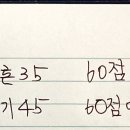 흔35 60점
기45 60점